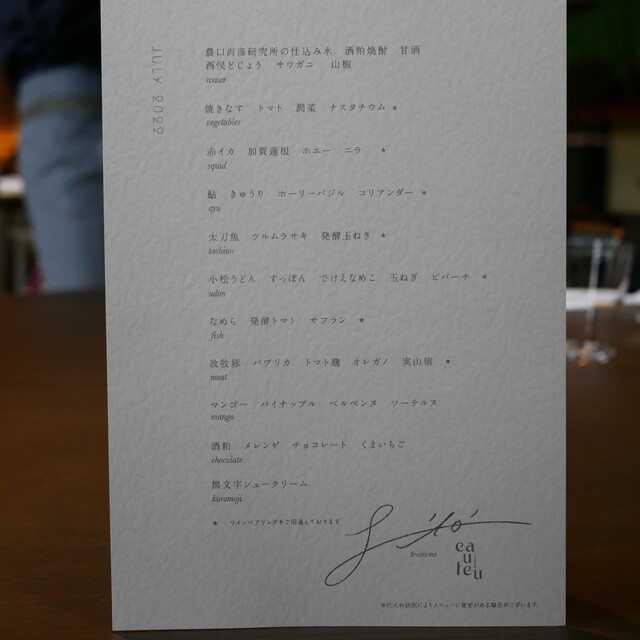 JULY 2022
農口尚彦研究所の仕込み水 酒粕焼酎 甘酒
西俣どじょう サワガニ 山椒
water
焼きなす トマト 潤菜 ナスタチウム *
vegetables
赤イカ 加賀蓮根 ホエー ニラ *
squid
鮎 きゅうり ホーリーバジル コリアンダー *
ayu
太刀魚 ツルムラサキ 発酵玉ねぎ *
tachiuo
小松うどん すっぽん でけえなめこ 玉ねぎ ピパーチ *
udon
なめら 発酵トマト サフラン *
fish
放牧豚 パプリカ トマト麹 オレガノ 実山椒 *
meat
マンゴー パイナップル ベルベンヌ ソーテルヌ
mango
酒粕 メレンゲ チョコレート くまいちご
chocolate
黒文字シュークリーム
kuromoji
* … ワインペアリングをご用意しております
Shota Itoi
eauleu
※仕入れ状況によりメニューに変更がある場合がございます。